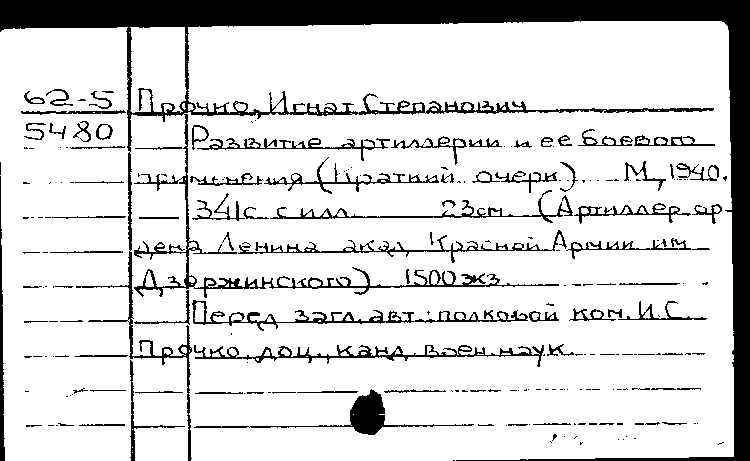 62-5 Прочко, Игнат Степанович
5480 Развитие артиллерии и ее боевого
применения (Краткий очерк). М., 1940.
341с. с илл. 23см. (Артиллер. ор-
дена Ленина акад. Красной Армии им
Дзержинского). 1500 экз.
Перед загл. авт.: полковой ком. И.С.
Прочко, доц., канд. воен. наук.